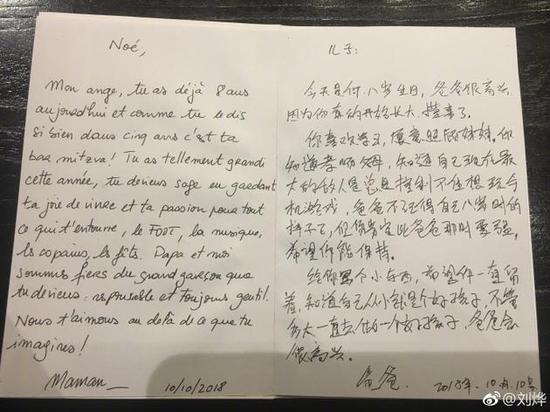 Noé,
Mon ange, tu as déjà 8 ans
aujourd'hui et comme tu le dis
si bien dans cinq ans c'est ta
bar mitzva! Tu as tellement grandi
cette année, tu deviens sage en gardant
ta joie de vivre et ta passion pour tout
ce qui t'entoure, le FOOT, la musique,
les copains, les fêts. Papa et moi
sommes fiers du grand garçon que
tu deviens: responsable et toujours gentil.
Nous t'aimons au delà de ce que tu
imagines!
Maman
10/10/2018
儿子:
今天是你八岁生日,爸爸很高兴
因为你真的开始长大,懂事了。
你喜欢学习,愿意照顾妹妹。你
知道孝顺父母,知道自己现在最
大的敌人是总是控制不住想玩手
机游戏,爸爸不记得自己八岁时的
样子了,但你肯定比爸爸那时要强,
希望你能保持。
给你写个小东西,希望你一直留
着,知道自己从小就是个好孩子,不管
多大一直去做一个好孩子,爸爸会
很高兴。
爸爸. 2018年.10月.10号
@刘烨